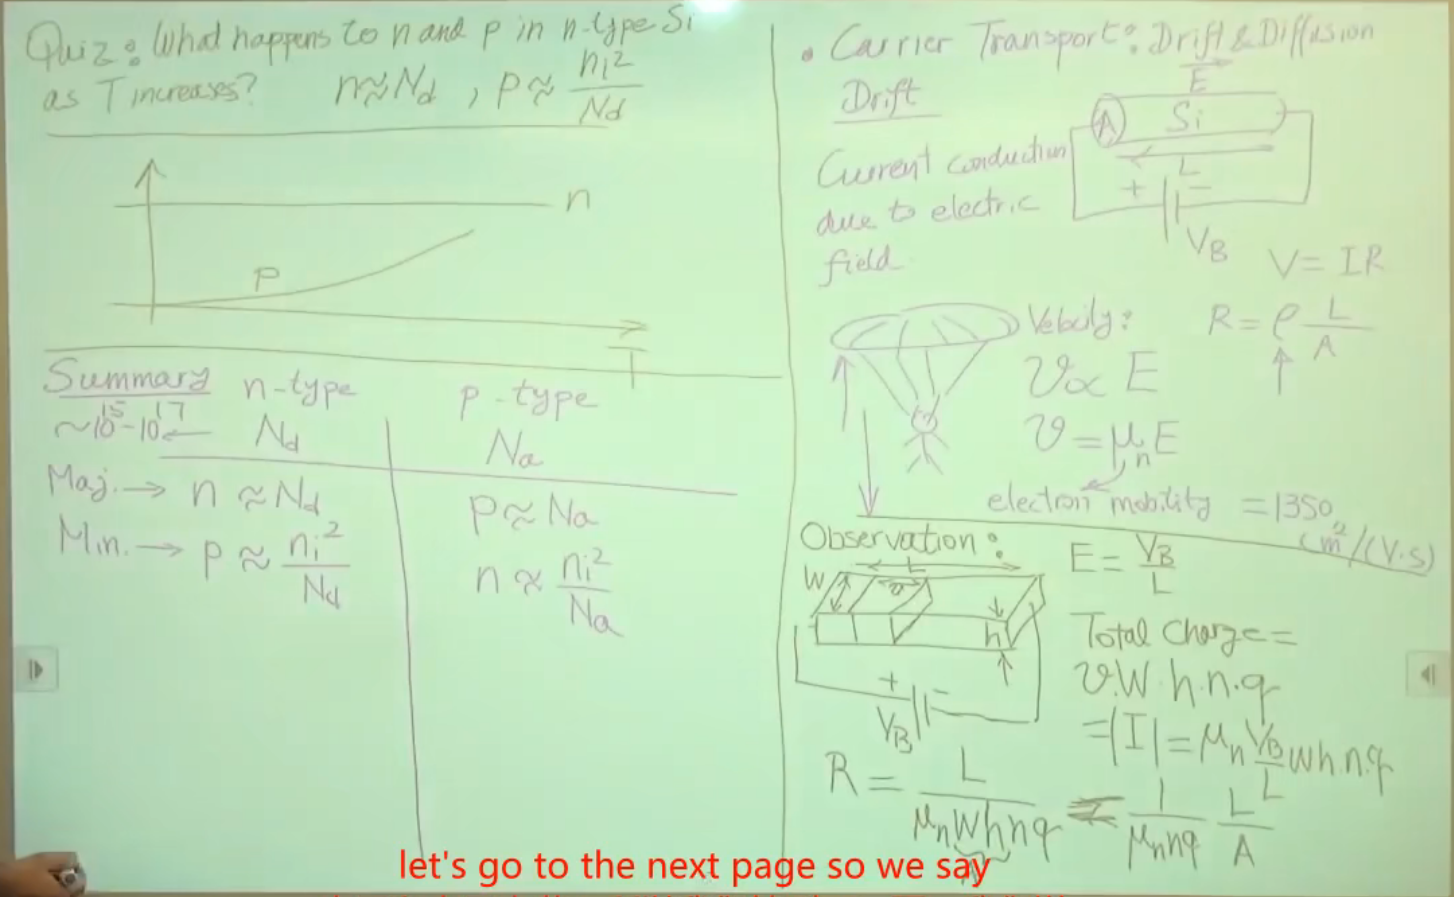 Quiz: What happens to n and p in n-type Si
as T increases? n≈Nd , p≈ ni²/Nd
n
P
T
Summary n-type p-type
~10^15-10^17 ← Nd Na
Maj. → n ≈ Nd p≈Na
Min. → p ≈ ni²/Nd n ≈ ni²/Na
• Carrier Transport: Drift & Diffusion
Drift
E
A Si
L
+ −
VB
Current conduction
due to electric
field.
V = IR
R = ρ L/A
Velocity:
v ∝ E
v = μn E
electron mobility = 1350 cm²/(V.s)
Observation:
L
W
h
+ −
VB
E = VB/L
Total Charge =
v.W.h.n.q
=|I| = μn VB/L Wh.n.q
R = L/(μn W h n q) = 1/(μn n q) L/A
A
let's go to the next page so we say